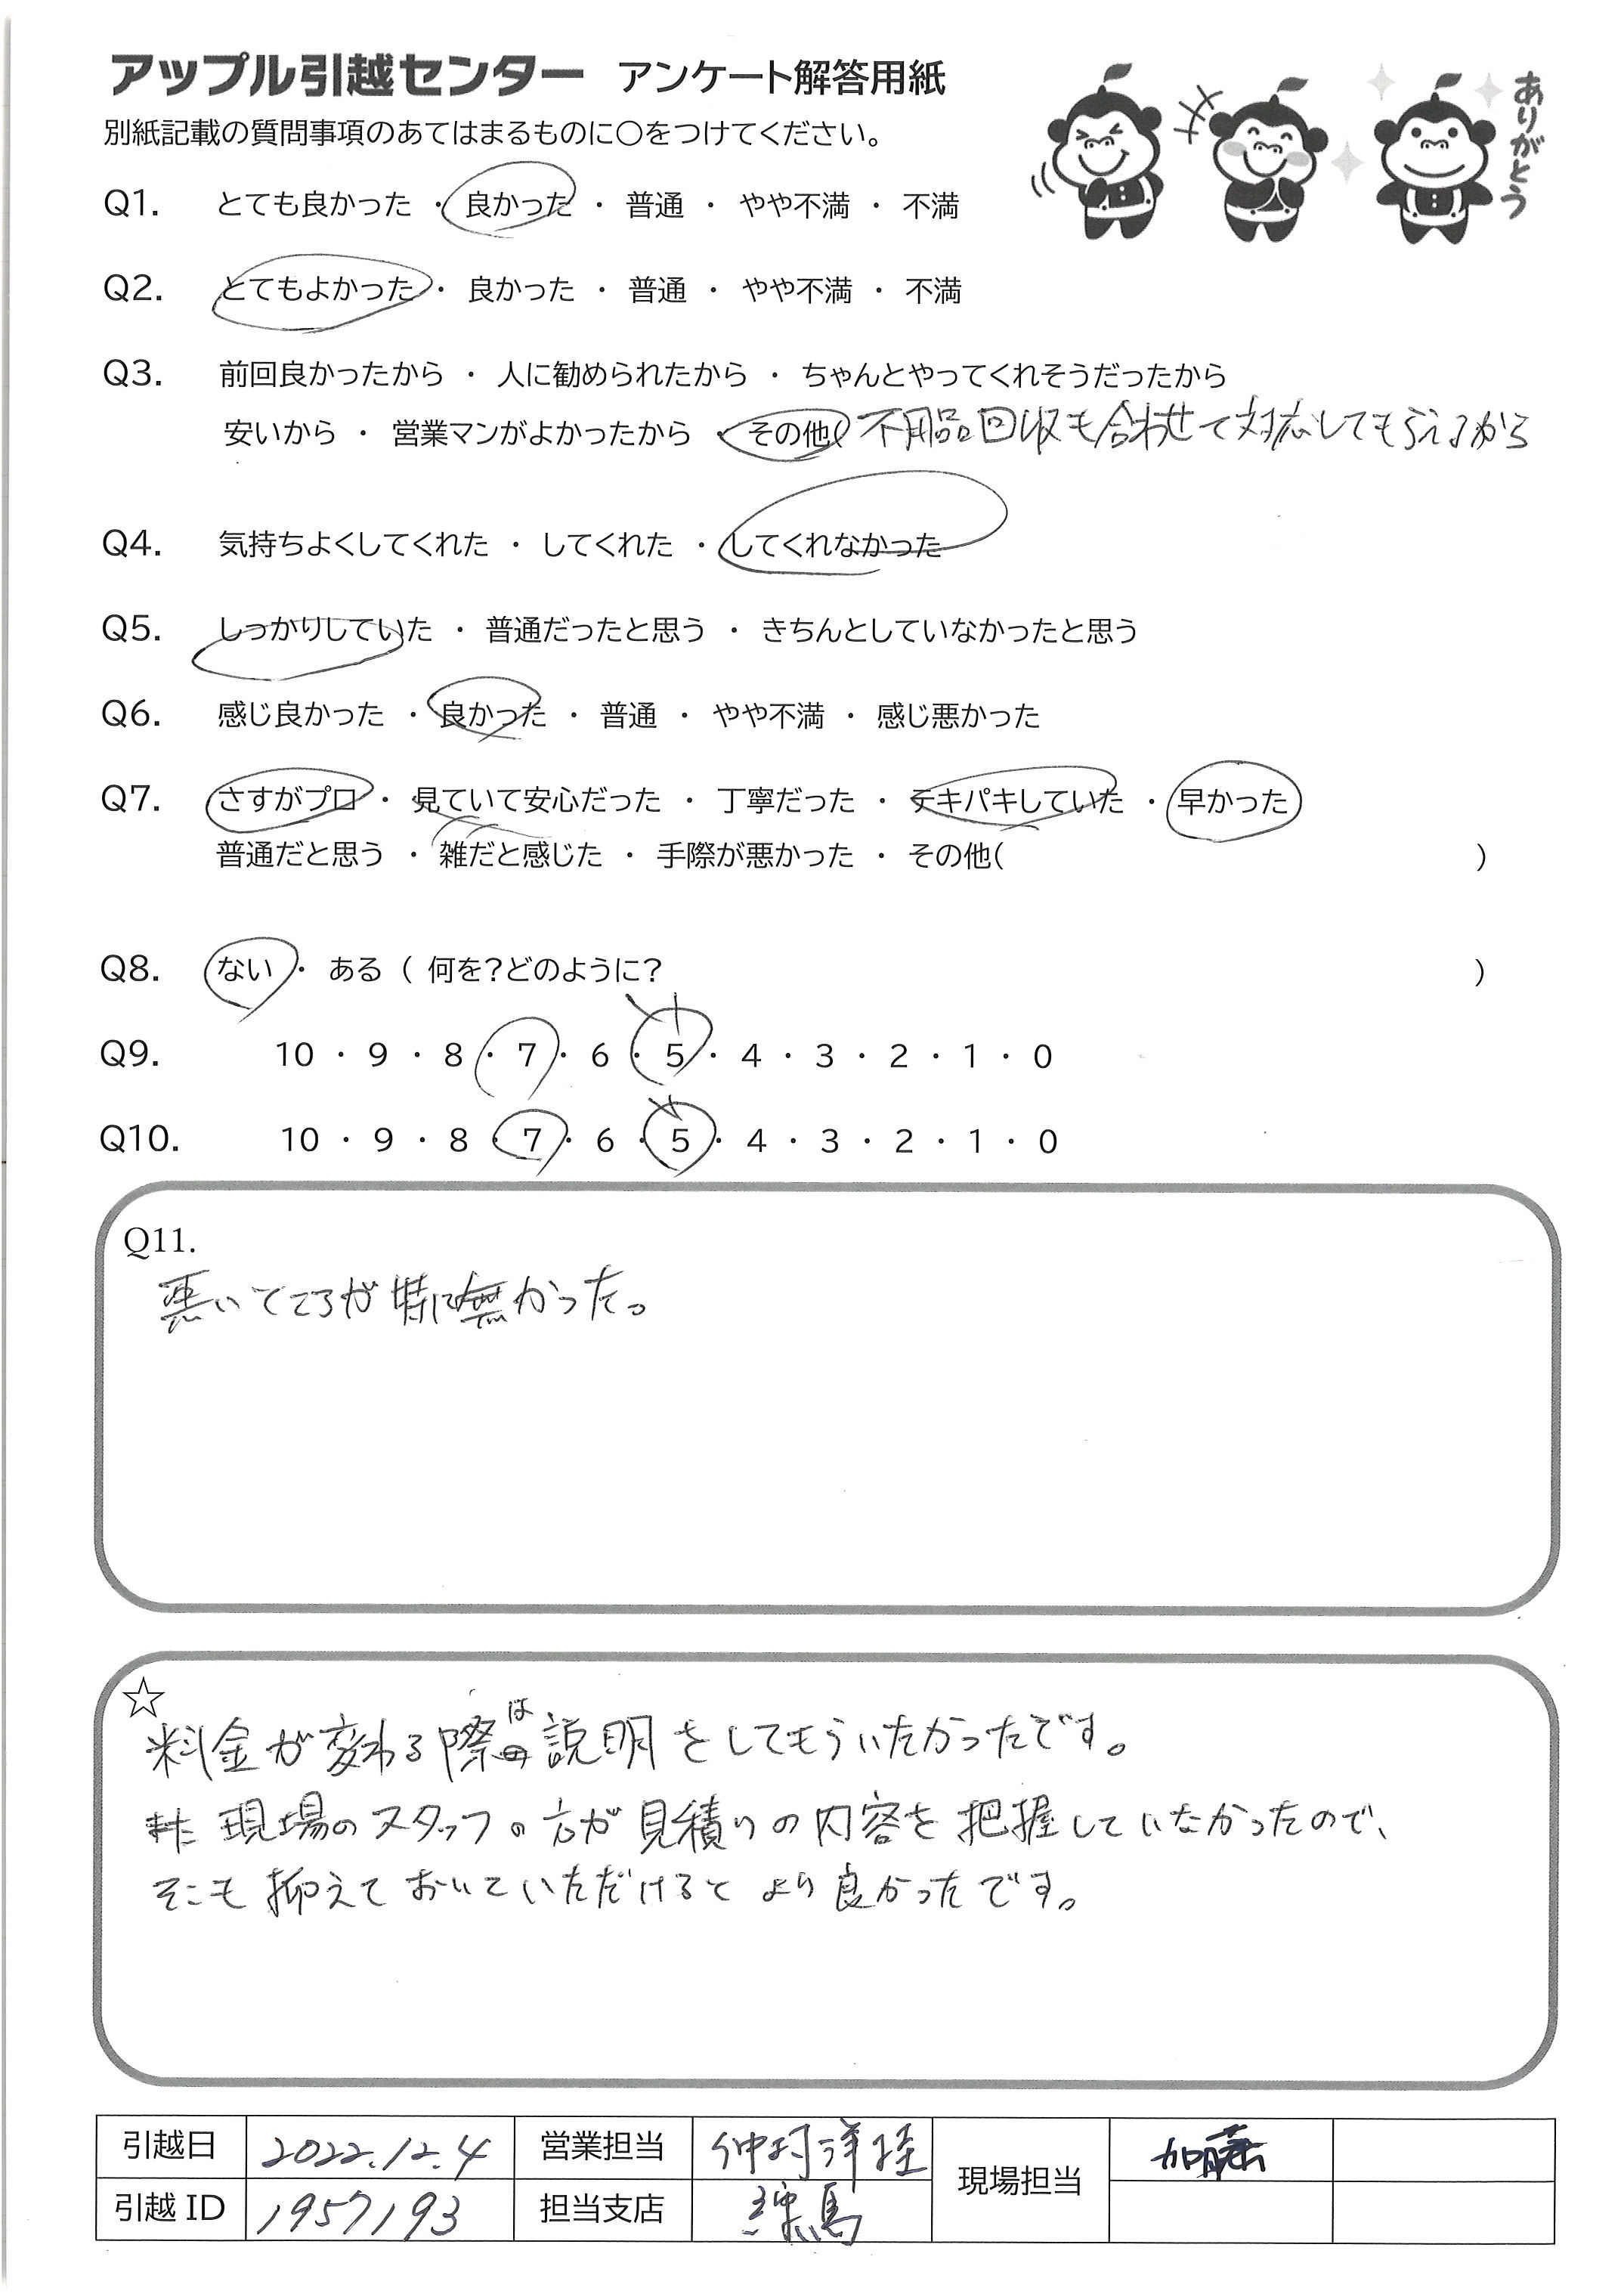 アップル引越センター アンケート解答用紙
別紙記載の質問事項のあてはまるものに○をつけてください。
ありがとう
Q1. とても良かった ・ 良かった ・ 普通 ・ やや不満 ・ 不満
Q2. とてもよかった ・ 良かった ・ 普通 ・ やや不満 ・ 不満
Q3. 前回良かったから ・ 人に勧められたから ・ ちゃんとやってくれそうだったから
安いから ・ 営業マンがよかったから ・ その他( 不用品回収も合わせて対応してもらえるから
Q4. 気持ちよくしてくれた ・ してくれた ・ してくれなかった
Q5. しっかりしていた ・ 普通だったと思う ・ きちんとしていなかったと思う
Q6. 感じ良かった ・ 良かった ・ 普通 ・ やや不満 ・ 感じ悪かった
Q7. さすがプロ ・ 見ていて安心だった ・ 丁寧だった ・ テキパキしていた ・ 早かった
普通だと思う ・ 雑だと感じた ・ 手際が悪かった ・ その他( )
Q8. ない ・ ある ( 何を?どのように? )
Q9. 10 ・ 9 ・ 8 ・ 7 ・ 6 ・ 5 ・ 4 ・ 3 ・ 2 ・ 1 ・ 0
Q10. 10 ・ 9 ・ 8 ・ 7 ・ 6 ・ 5 ・ 4 ・ 3 ・ 2 ・ 1 ・ 0
Q11.
悪いところが特に無かった。
☆
料金が変わる際は説明をしてもらいたかったです。
また現場のスタッフの方が見積りの内容を把握していなかったので、
そこも抑えておいていただけるとより良かったです。
引越日 2022.12.4 営業担当 仲村洋陸 現場担当 加藤
引越ID 1957193 担当支店 練馬